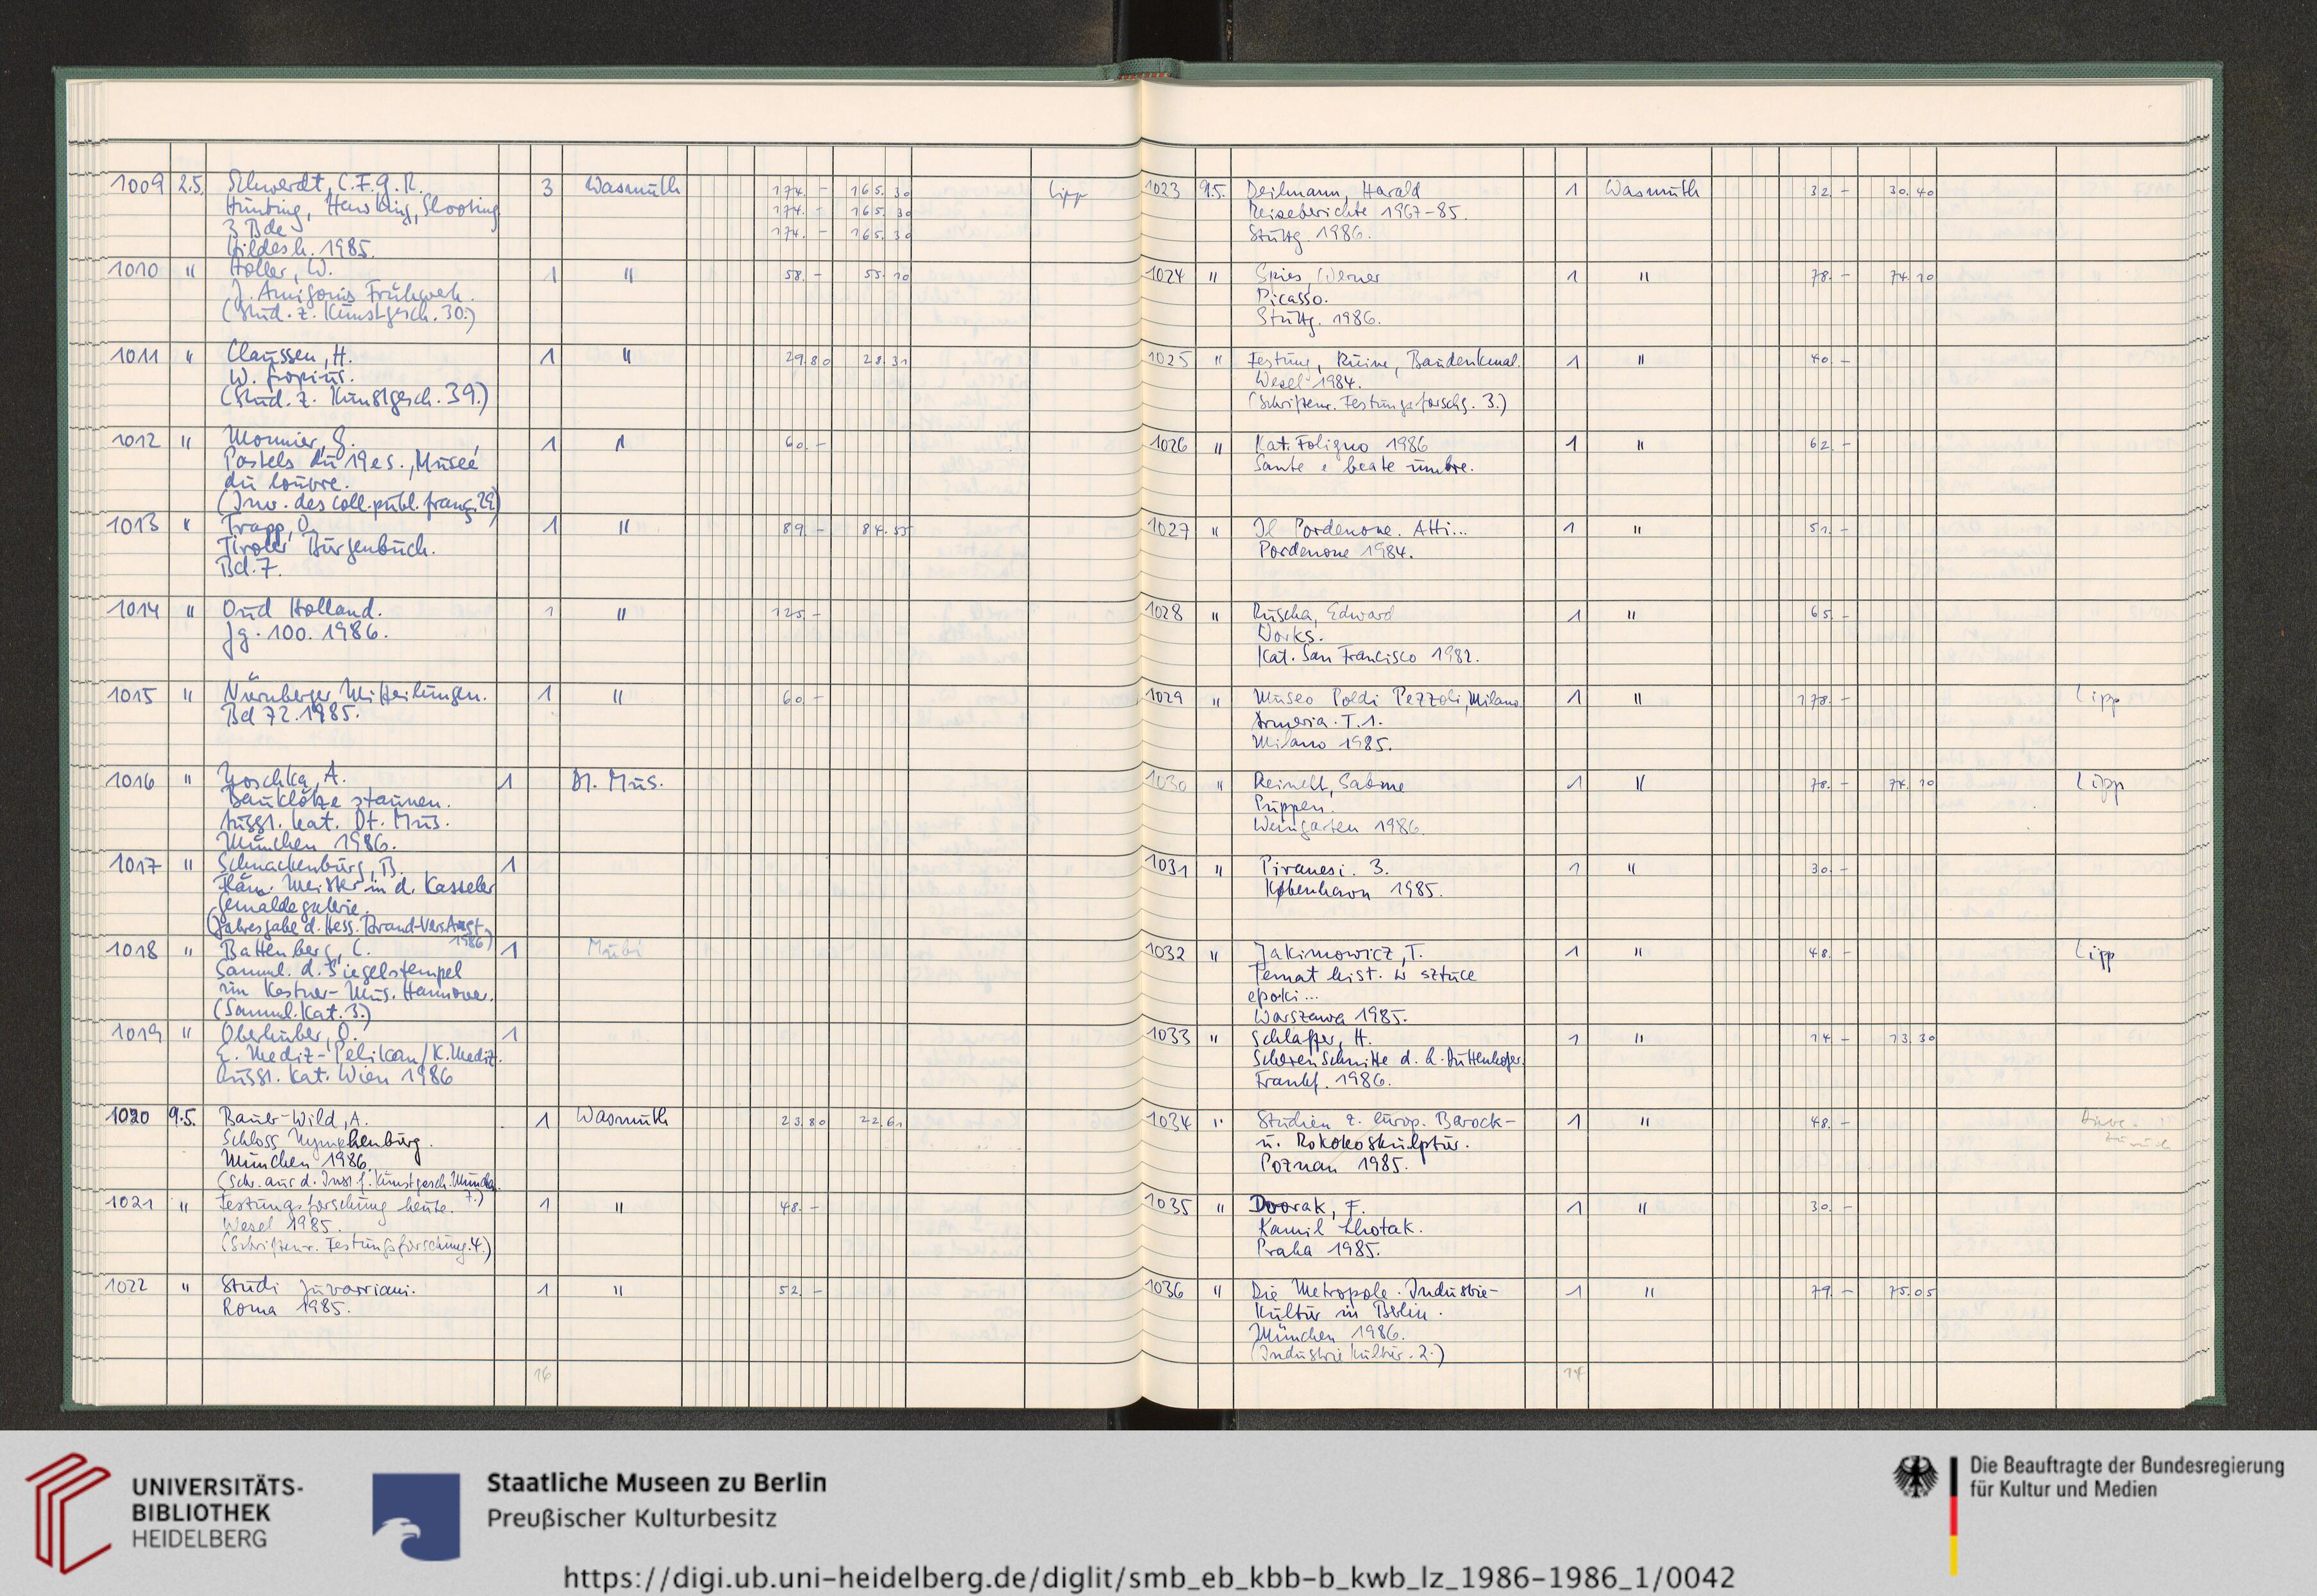 1009 2.5. Schwerdt, C.F.G.R. 3 Wasmuth 174. - 165.30 Lipp
Hunting, Hawking, Shooting 174. - 165.30
3 Bde 174. - 165.30
Hildesh. 1985.
1010 " Holler, W. 1 " 58. - 55.10
J. Amigonis Frühwerk.
(Stud. z. Kunstgesch. 30.)
1011 " Claussen, H. 1 " 29.80 28.31
W. Gropius.
(Stud. z. Kunstgesch. 39.)
1012 " Monnier, G. 1 " 60. -
Pastels du 19e s., Museé
du Louvre.
(Inv. des coll. publ. franç. 29)
1013 " Trapp, O. 1 " 89. - 84.55
Tiroler Burgenbuch.
Bd. 7.
1014 " Oud Holland. 1 " 125. -
Jg. 100. 1986.
1015 " Nürnberger Mitteilungen. 1 " 60. -
Bd 72. 1985.
1016 " Hoschka, A. 1 Dt. Mus.
Bauklötze staunen.
Ausst. Kat. Dt. Mus.
München 1986.
1017 " Schnackenburg, B. 1
Fläm. Meister in d. Kasseler
Gemäldegalerie.
(Jahresgabe d. Hess. Brand-Vers. Anst.
1986)
1018 " Battenberg, C. 1
Samml. d. Siegelstempel
im Kestner-Mus. Hannover.
(Samml. Kat. 3.)
1019 " Oberhuber, O. 1
E. Mediz-Pelikan/K. Mediz.
Ausst. Kat. Wien 1986
1020 9.5. Bauer-Wild, A. 1 Wasmuth 23.80 22.61
Schloss Nymphenburg.
München 1986.
(Schr. aus d. Inst. f. Kunstgesch. München
7.)
1021 " Festungsforschung heute. 1 " 48. -
Wesel 1985.
(Schriftenr. Festungsforschung. 4.)
1022 " Studi Juvarriani. 1 " 52. -
Roma 1985.
16
1023 9.5. Deilmann, Harald 1 Wasmuth 32. - 30.40
Reiseberichte 1967-85.
Stuttg. 1986.
1024 " Spies, Werner 1 " 78. - 74.10
Picasso.
Stuttg. 1986.
1025 " Festung, Ruine, Baudenkmal. 1 " 40. -
Wesel 1984.
(Schriftenr. Festungsforschg. 3.)
1026 " Kat. Foligno 1986 1 " 62. -
Sante e beate umbre.
1027 " Il Pordenone. Atti... 1 " 51. -
Pordenone 1984.
1028 " Ruscha, Edward 1 " 65. -
Works.
Kat. San Francisco 1982.
1029 " Museo Poldi Pezzoli, Milano 1 " 178. - Lipp
Armeria. T. 1.
Milano 1985.
1030 " Reinelt, Sabine 1 " 78. - 74.10 Lipp
Puppen.
Weingarten 1986.
1031 " Piranesi. 3. 1 " 30. -
København 1985.
1032 " Jakimowicz, T. 1 " 48. - Lipp
Temat hist. w sztuce
epoki...
Warszawa 1985.
1033 " Schlaffer, H. 1 " 14. - 13.30
Scherenschnitte d. L. Duttenhofer.
Frankf. 1986.
1034 " Studien z. europ. Barock- 1 " 48. -
u. Rokokoskulptur.
Poznan 1985.
1035 " Dvorak, F. 1 " 30. -
Kamil Lhotak.
Praha 1985.
1036 " Die Metropole. Industrie- 1 " 79. - 75.05
kultur in Berlin.
München 1986.
(Industriekultur. 2.)
14
UNIVERSITÄTS-
BIBLIOTHEK
HEIDELBERG
Staatliche Museen zu Berlin
Preußischer Kulturbesitz
Die Beauftragte der Bundesregierung
für Kultur und Medien
https://digi.ub.uni-heidelberg.de/diglit/smb_eb_kbb-b_kwb_lz_1986-1986_1/0042